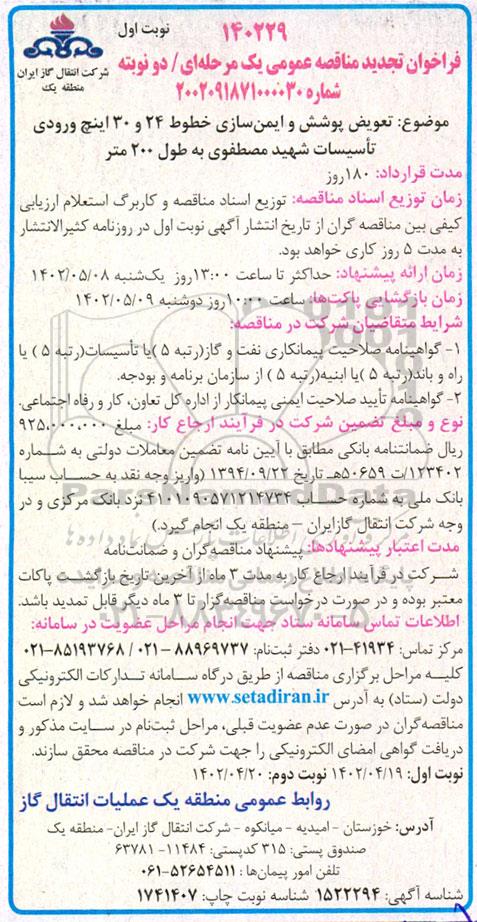 نوبت اول
۱۴۰۲۲۹
شرکت انتقال گاز ایران
منطقه یک
فراخوان تجدید مناقصه عمومی یک مرحله‌ای / دو نوبته
شماره ۲۰۰۲۰۹۱۸۷۱۰۰۰۰۳۰
موضوع: تعویض پوشش و ایمن‌سازی خطوط ۲۴ و ۳۰ اینچ ورودی
تأسیسات شهید مصطفوی به طول ۲۰۰ متر
مدت قرارداد: ۱۸۰روز
زمان توزیع اسناد مناقصه: توزیع اسناد مناقصه و کاربرگ استعلام ارزیابی
کیفی بین مناقصه گران از تاریخ انتشار آگهی نوبت اول در روزنامه کثیرالانتشار
به مدت ۵ روز کاری خواهد بود.
زمان ارائه پیشنهاد: حداکثر تا ساعت ۱۳:۰۰روز یک‌شنبه ۱۴۰۲/۰۵/۰۸
زمان بازگشایی پاکت‌ها: ساعت ۱۰:۰۰روز دوشنبه ۱۴۰۲/۰۵/۰۹
شرایط متقاضیان شرکت در مناقصه:
۱- گواهینامه صلاحیت پیمانکاری نفت و گاز(رتبه ۵ )یا تأسیسات(رتبه ۵ ) یا
راه و باند(رتبه ۵ )یا ابنیه(رتبه ۵ ) از سازمان برنامه و بودجه.
۲- گواهینامه تأیید صلاحیت ایمنی پیمانکار از اداره کل تعاون، کار و رفاه اجتماعی.
نوع و مبلغ تضمین شرکت در فرآیند ارجاع کار: مبلغ ۹۲۵,۰۰۰,۰۰۰
ریال ضمانتنامه بانکی مطابق با آیین نامه تضمین معاملات دولتی به شماره
۱۲۳۴۰۲/ت ۵۰۶۵۹هـ تاریخ ۱۳۹۴/۰۹/۲۲ (واریز وجه نقد به حساب سیبا
بانک ملی به شماره حساب ۴۱۰۱۰۹۰۵۷۱۲۱۴۷۳۴ نزد بانک مرکزی و در
وجه شرکت انتقال گازایران – منطقه یک انجام گیرد.)
مدت اعتبار پیشنهادها: پیشنهاد مناقصه‌گران و ضمانت‌نامه
شرکت در فرآیند ارجاع کار به مدت ۳ ماه از آخرین تاریخ بازگشت پاکات
معتبر بوده و در صورت درخواست مناقصه‌گزار تا ۳ ماه دیگر قابل تمدید باشد.
اطلاعات تماس سامانه ستاد جهت انجام مراحل عضویت در سامانه:
مرکز تماس: ۴۱۹۳۴-۰۲۱ دفتر ثبت‌نام: ۸۸۹۶۹۷۳۷ - ۰۲۱ / ۸۵۱۹۳۷۶۸-۰۲۱
کلیه مراحل برگزاری مناقصه از طریق درگاه سامانه تدارکات الکترونیکی
دولت (ستاد) به آدرس www.setadiran.ir انجام خواهد شد و لازم است
مناقصه‌گران در صورت عدم عضویت قبلی، مراحل ثبت‌نام در سایت مذکور و
دریافت گواهی امضای الکترونیکی را جهت شرکت در مناقصه محقق سازند.
نوبت اول: ۱۴۰۲/۰۴/۱۹ نوبت دوم: ۱۴۰۲/۰۴/۲۰
روابط عمومی منطقه یک عملیات انتقال گاز
آدرس: خوزستان - امیدیه - میانکوه - شرکت انتقال گاز ایران- منطقه یک
صندوق پستی: ۳۱۵ کدپستی: ۱۱۴۸۴- ۶۳۷۸۱
تلفن امور پیمان‌ها : ۵۲۶۵۴۵۱۱-۰۶۱
شناسه آگهی: ۱۵۲۲۲۹۴ شناسه نوبت چاپ: ۱۷۴۱۴۰۷
ParsNamadData